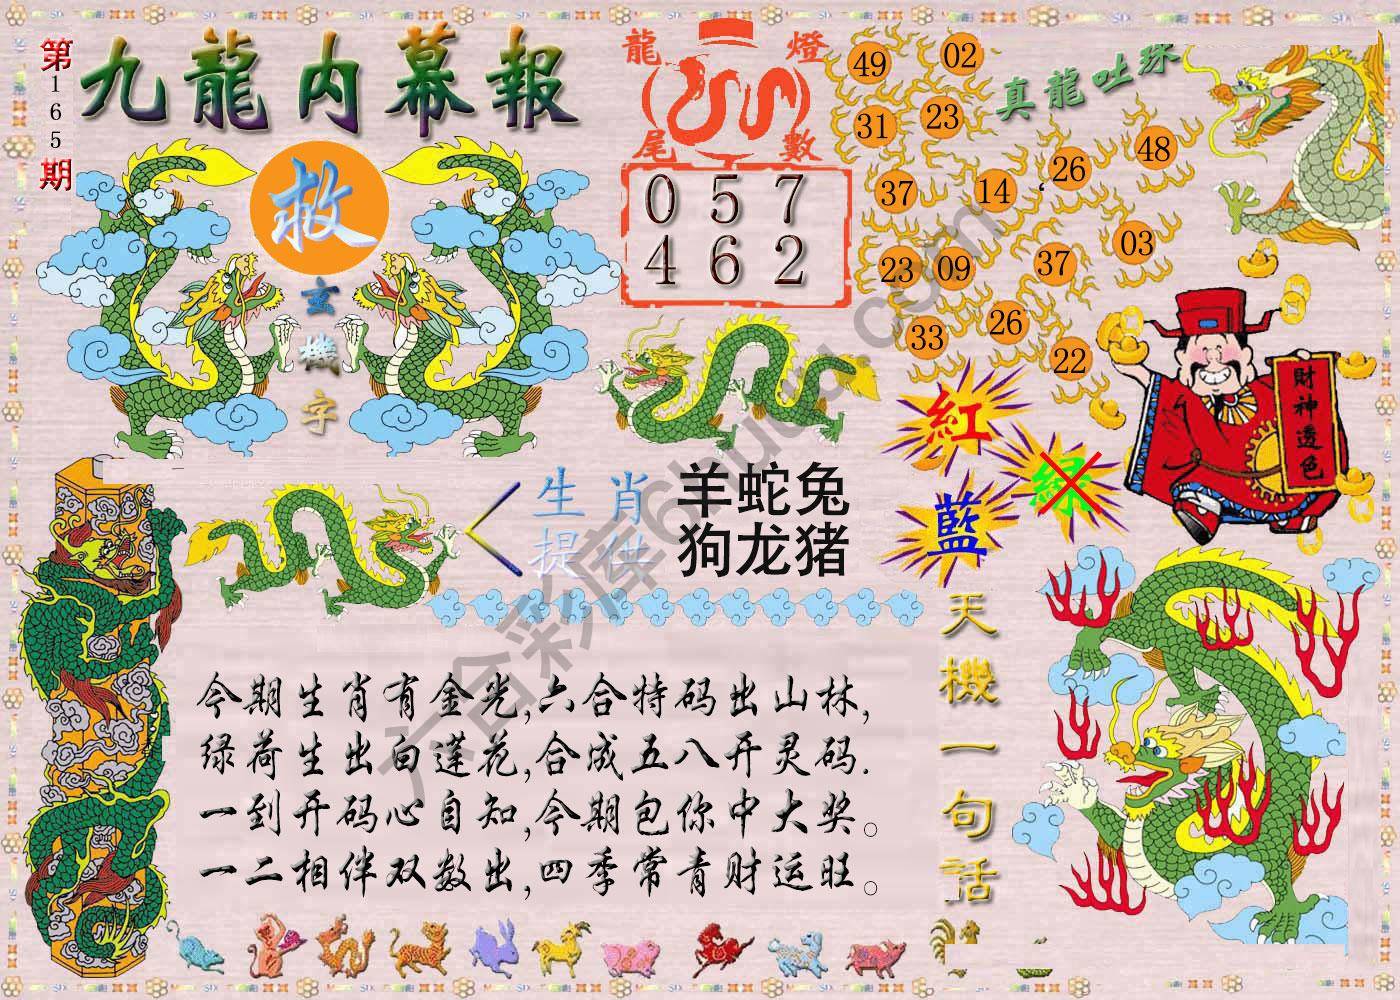 第165期
九龍内幕報
救
玄機字
龍燈
尾數
0 5 7
4 6 2
真龍吐珠
49 02
31 23
37 14 26 48
23 09 37 03
33 26 22
紅
藍
绿
財神透色
生肖
提供
羊蛇兔
狗龙猪
天機一句話
今期生肖有金光,六合特码出山林,
绿荷生出白莲花,合成五八开灵码.
一到开码心自知,今期包你中大奖。
一二相伴双数出,四季常青财运旺。
六合彩库6huca.com